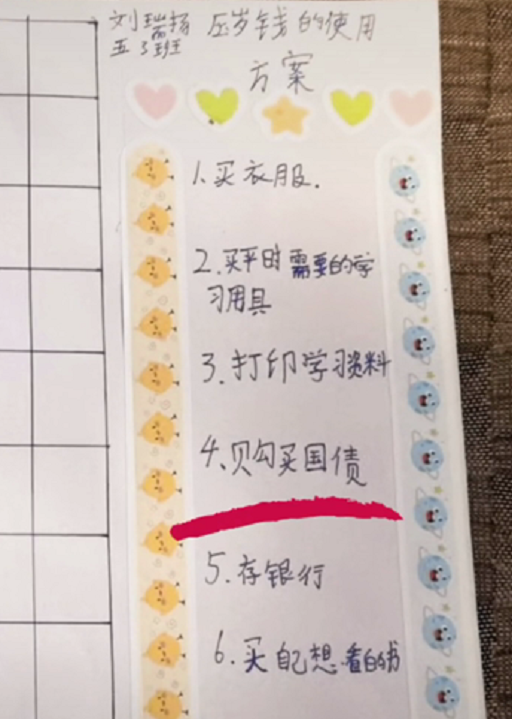 刘瑞扬 压岁钱的使用
五3班
方案
1.买衣服.
2.买平时需要的学
习用具
3.打印学习资料
4、购买国债
5.存银行
6.买自己想看的书